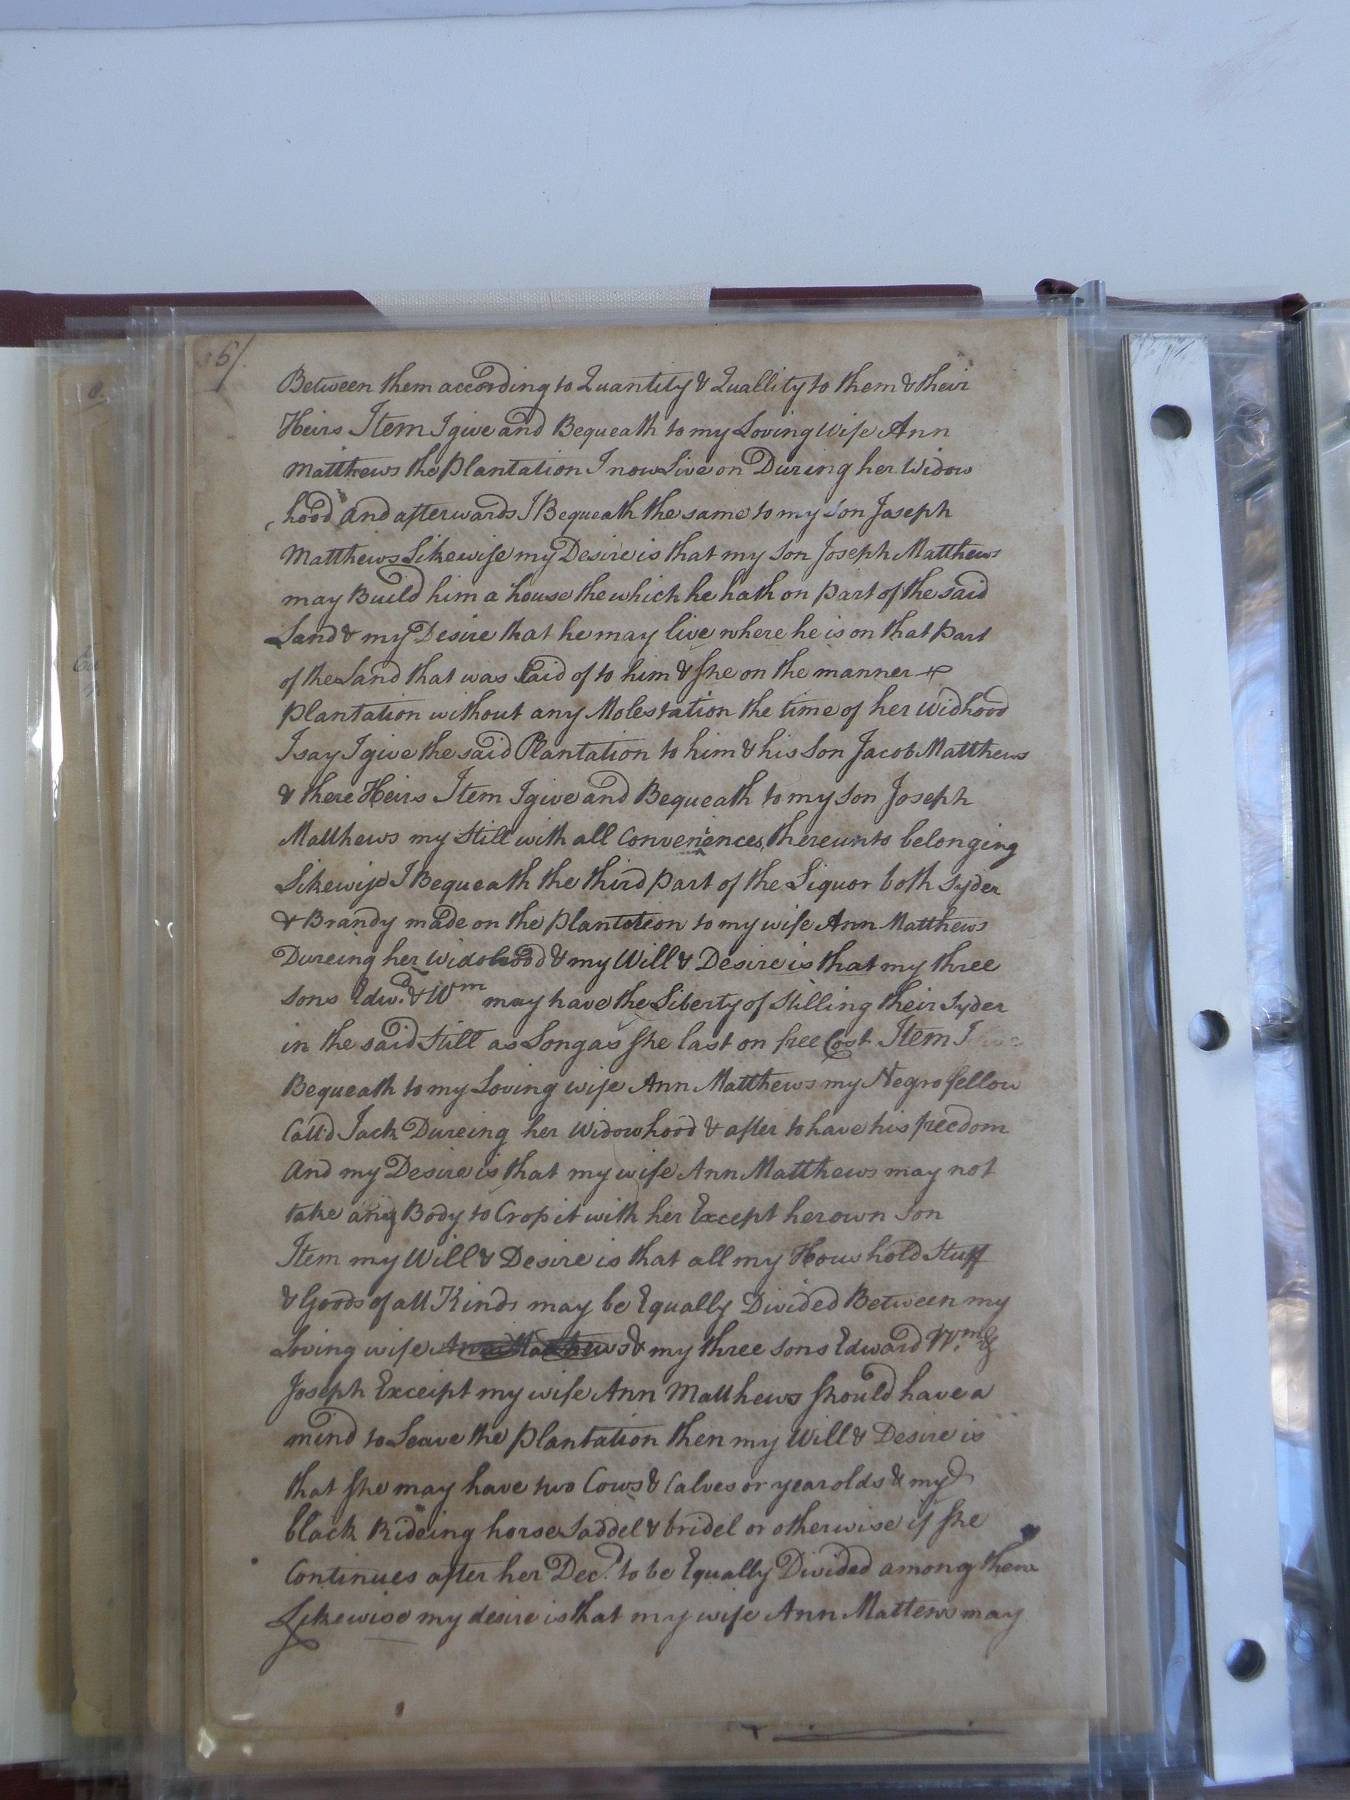 5/
Between them according to Quantity & Quallity to them & their
Heirs Item I give and Bequeath to my Loving Wife Ann
Matthews the Plantation I now Live on During her Widow
hood and afterwards I Bequeath the same to my Son Joseph
Matthews Likewise my Desire is that my Son Joseph Matthews
may Build him a house the which he hath on part of the said
Land & my Desire that he may live where he is on that part
of the Land that was Laid of to him & she on the manner
Plantation without any Molestation the time of her Widhood
I say I give the said Plantation to him & his Son Jacob Matthews
& there Heirs Item I give and Bequeath to my Son Joseph
Matthews my Still with all Conveniences thereunto belonging
Likewise I Bequeath the third part of the Liquor both Syder
& Brandy made on the Plantation to my wife Ann Matthews
Dureing her Widohood & my Will & Desire is that my three
sons Edwd. & Wm may have the Liberty of Stilling their Syder
in the said Still as Long as she last on free Cost Item I
Bequeath to my Loving wife Ann Matthews my Negro fellow
Calld Jack Dureing her Widowhood & after to have his freedom
And my Desire is that my wife Ann Matthews may not
take any Body to Crop it with her Except her own Son
Item my Will & Desire is that all my Houshold Stuff
& Goods of all Kinds may be Equally Divided Between my
Loving wife Ann Matthews & my three sons Edward Wm. &
Joseph Exceipt my wife Ann Matthews should have a
mind to Leave the Plantation then my Will & Desire is
that she may have two Cows & Calves or yearolds & my
black Rideing horse Saddel & bridel or otherwise if she
Continues after her Decd. to be Equally Divided among them
Likewise my desire is that my wife Ann Mattews may